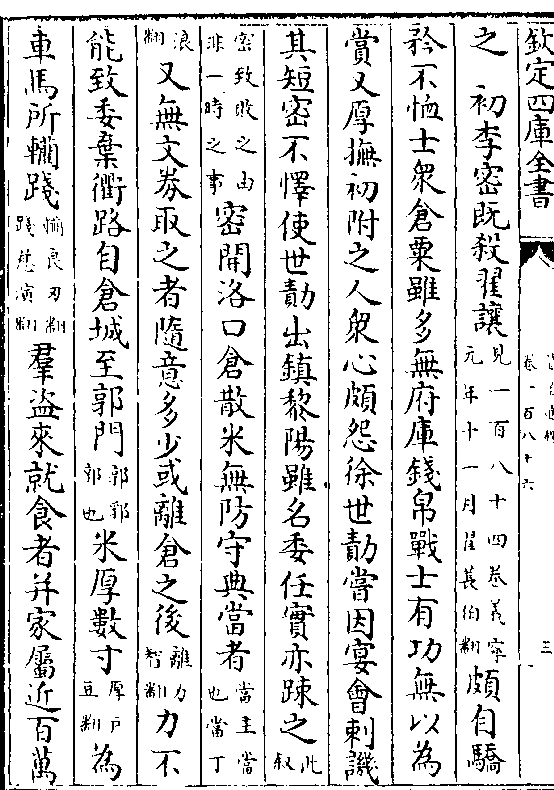 欽定四庫全書
卷一百八十六
三
之　初李密既殺翟讓見一百八十四卷義寧元年十一月翟萇伯翻頗自驕
矜不恤士衆倉粟雖多無府庫錢帛戰士有功無以為
賞又厚撫初附之人衆心頗怨徐世勣嘗因宴會刺譏
其短密不懌使世勣出鎮黎陽雖名委任實亦踈之此叙
密致敗之由非一時之事密開洛口倉散米無防守典當者當主當也當丁
浪翻又無文券取之者隨意多少或離倉之後離力智翻力不
能致委棄衢路自倉城至郭門郭郛郭也米厚數寸厚戶豆翻為
車馬所轥踐轥良刃翻踐慈演翻羣盜來就食者并家屬近百萬